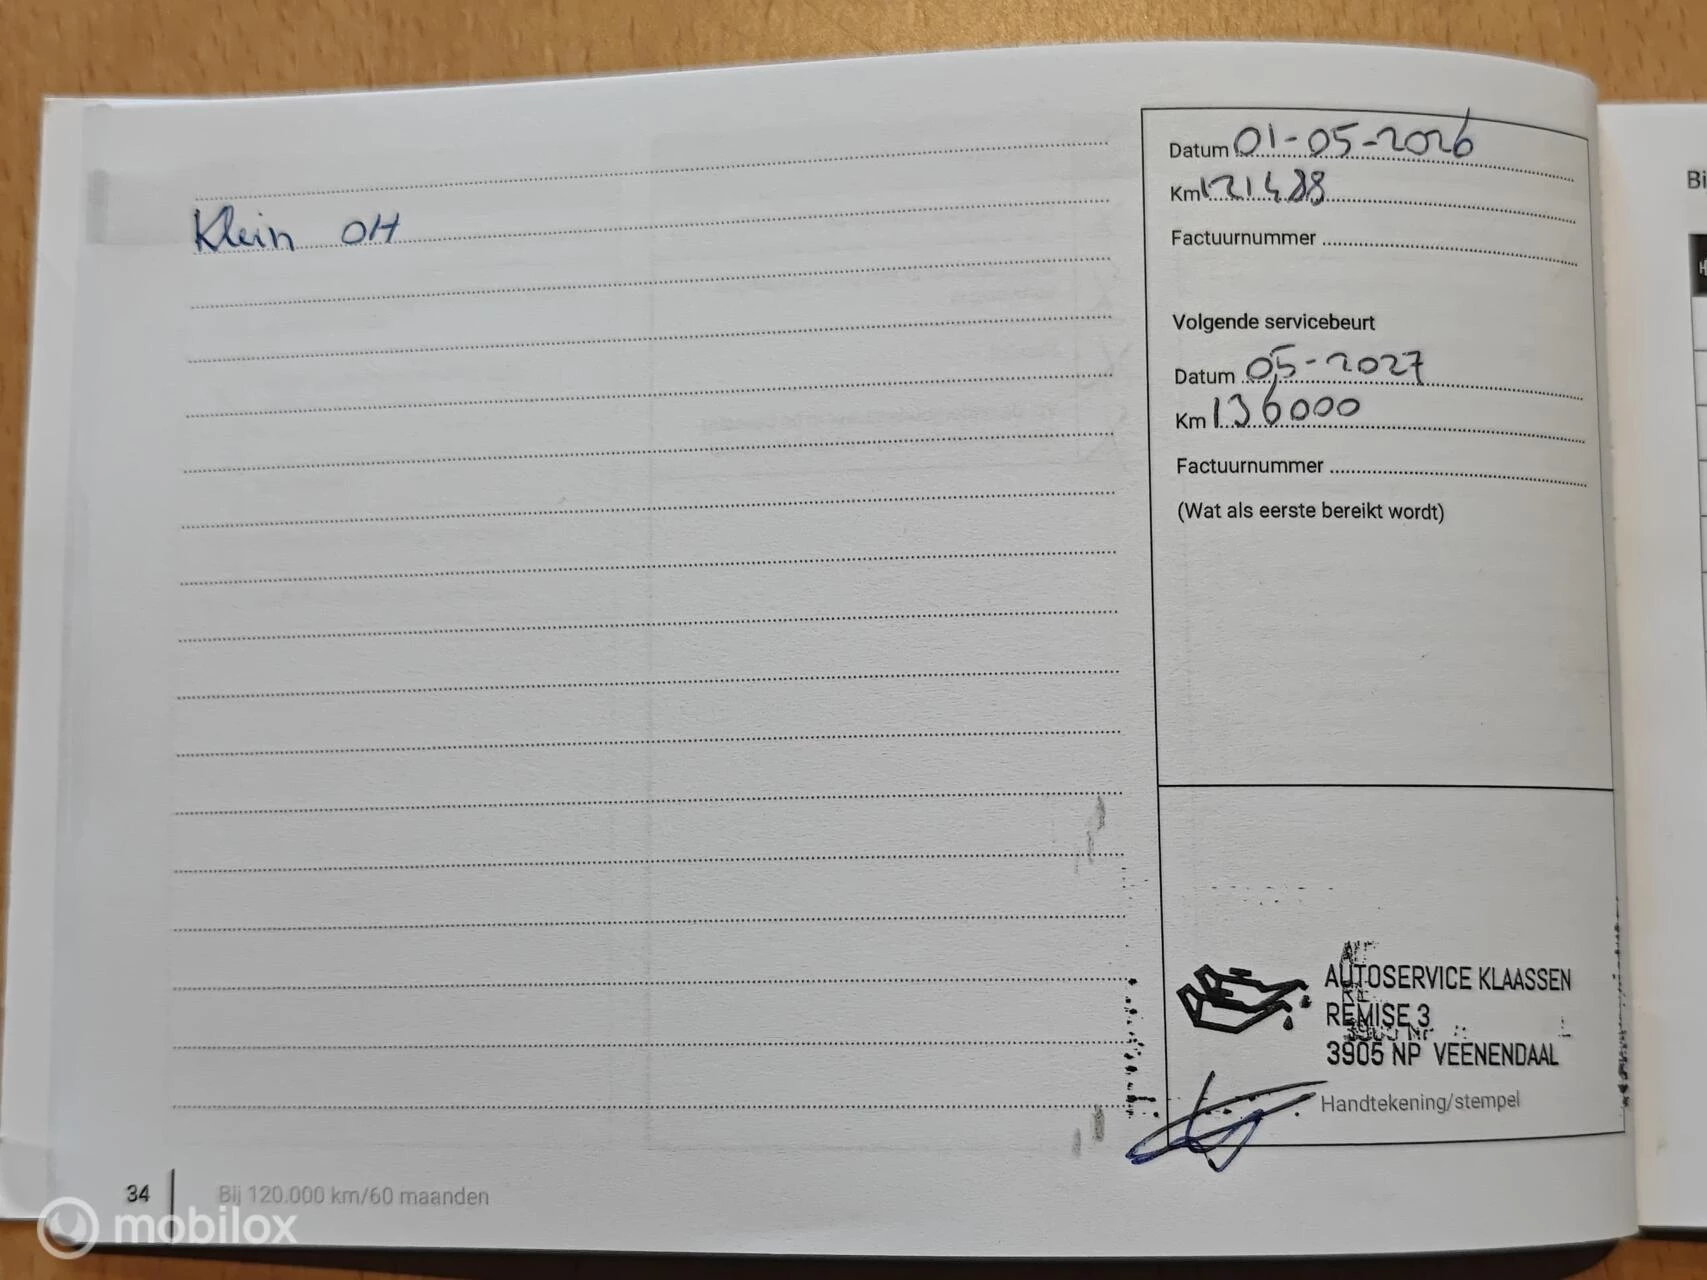 Klein OH
Datum 01-05-2026
Km 121488
Factuurnummer
Volgende servicebeurt
Datum 05-2027
Km 136000
Factuurnummer
(Wat als eerste bereikt wordt)
AUTOSERVICE KLAASSEN
REMISE 3
3905 NP VEENENDAAL
Handtekening/stempel
34
Bij 120.000 km/60 maanden
mobilox
Bi